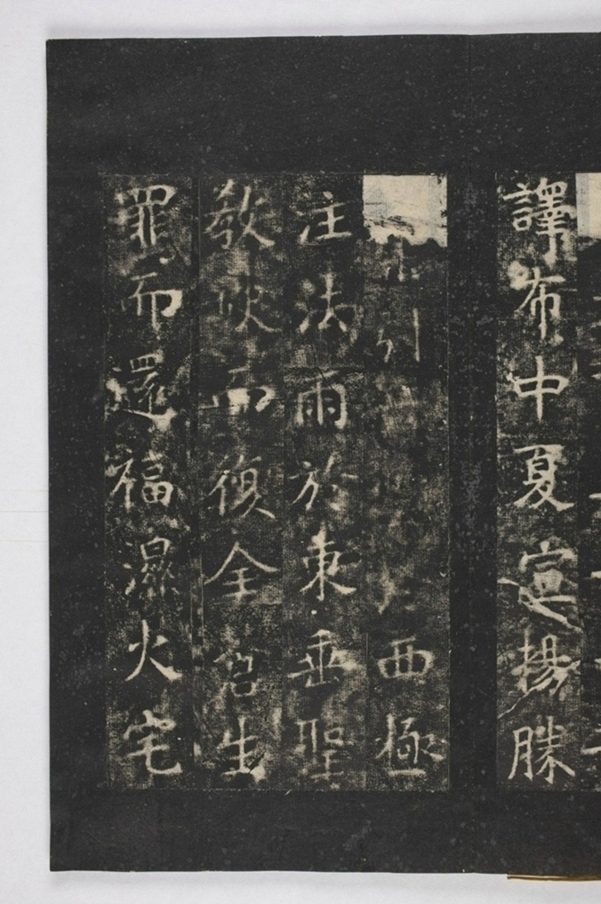 譯布中夏宣揚勝
引西極
注法雨於東垂聖
教缺而復全蒼生
罪而還福濕火宅